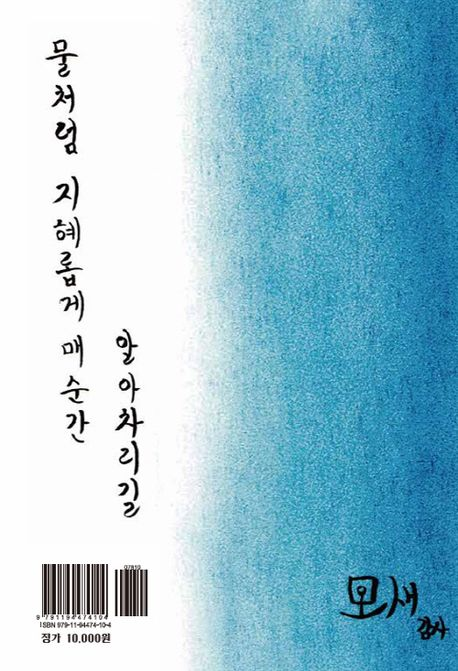 물처럼 지혜롭게 매순간
알아차리길
모새
감사
07810
9 791194 474104
ISBN 979-11-94474-10-4
정가 10,000원